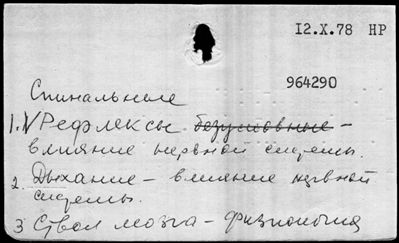 12.X.78 НР
964290
Спинальные
1. Рефлексы безусловные –
влияние нервной системы.
2. Дыхание – влияние нервной
системы.
3 Ствол мозга – физиология